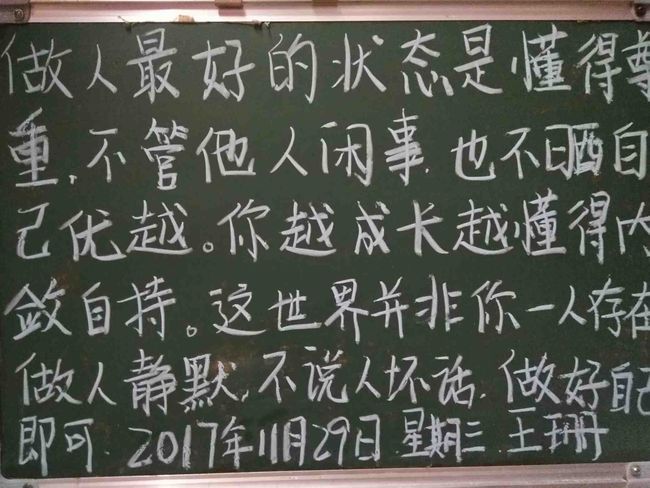 做人最好的状态是懂得尊
重,不管他人闲事,也不晒自
己优越。你越成长越懂得内
敛自持。这世界并非你一人存在
做人静默,不说人坏话,做好自己
即可.2017年11月29日 星期三 王珊